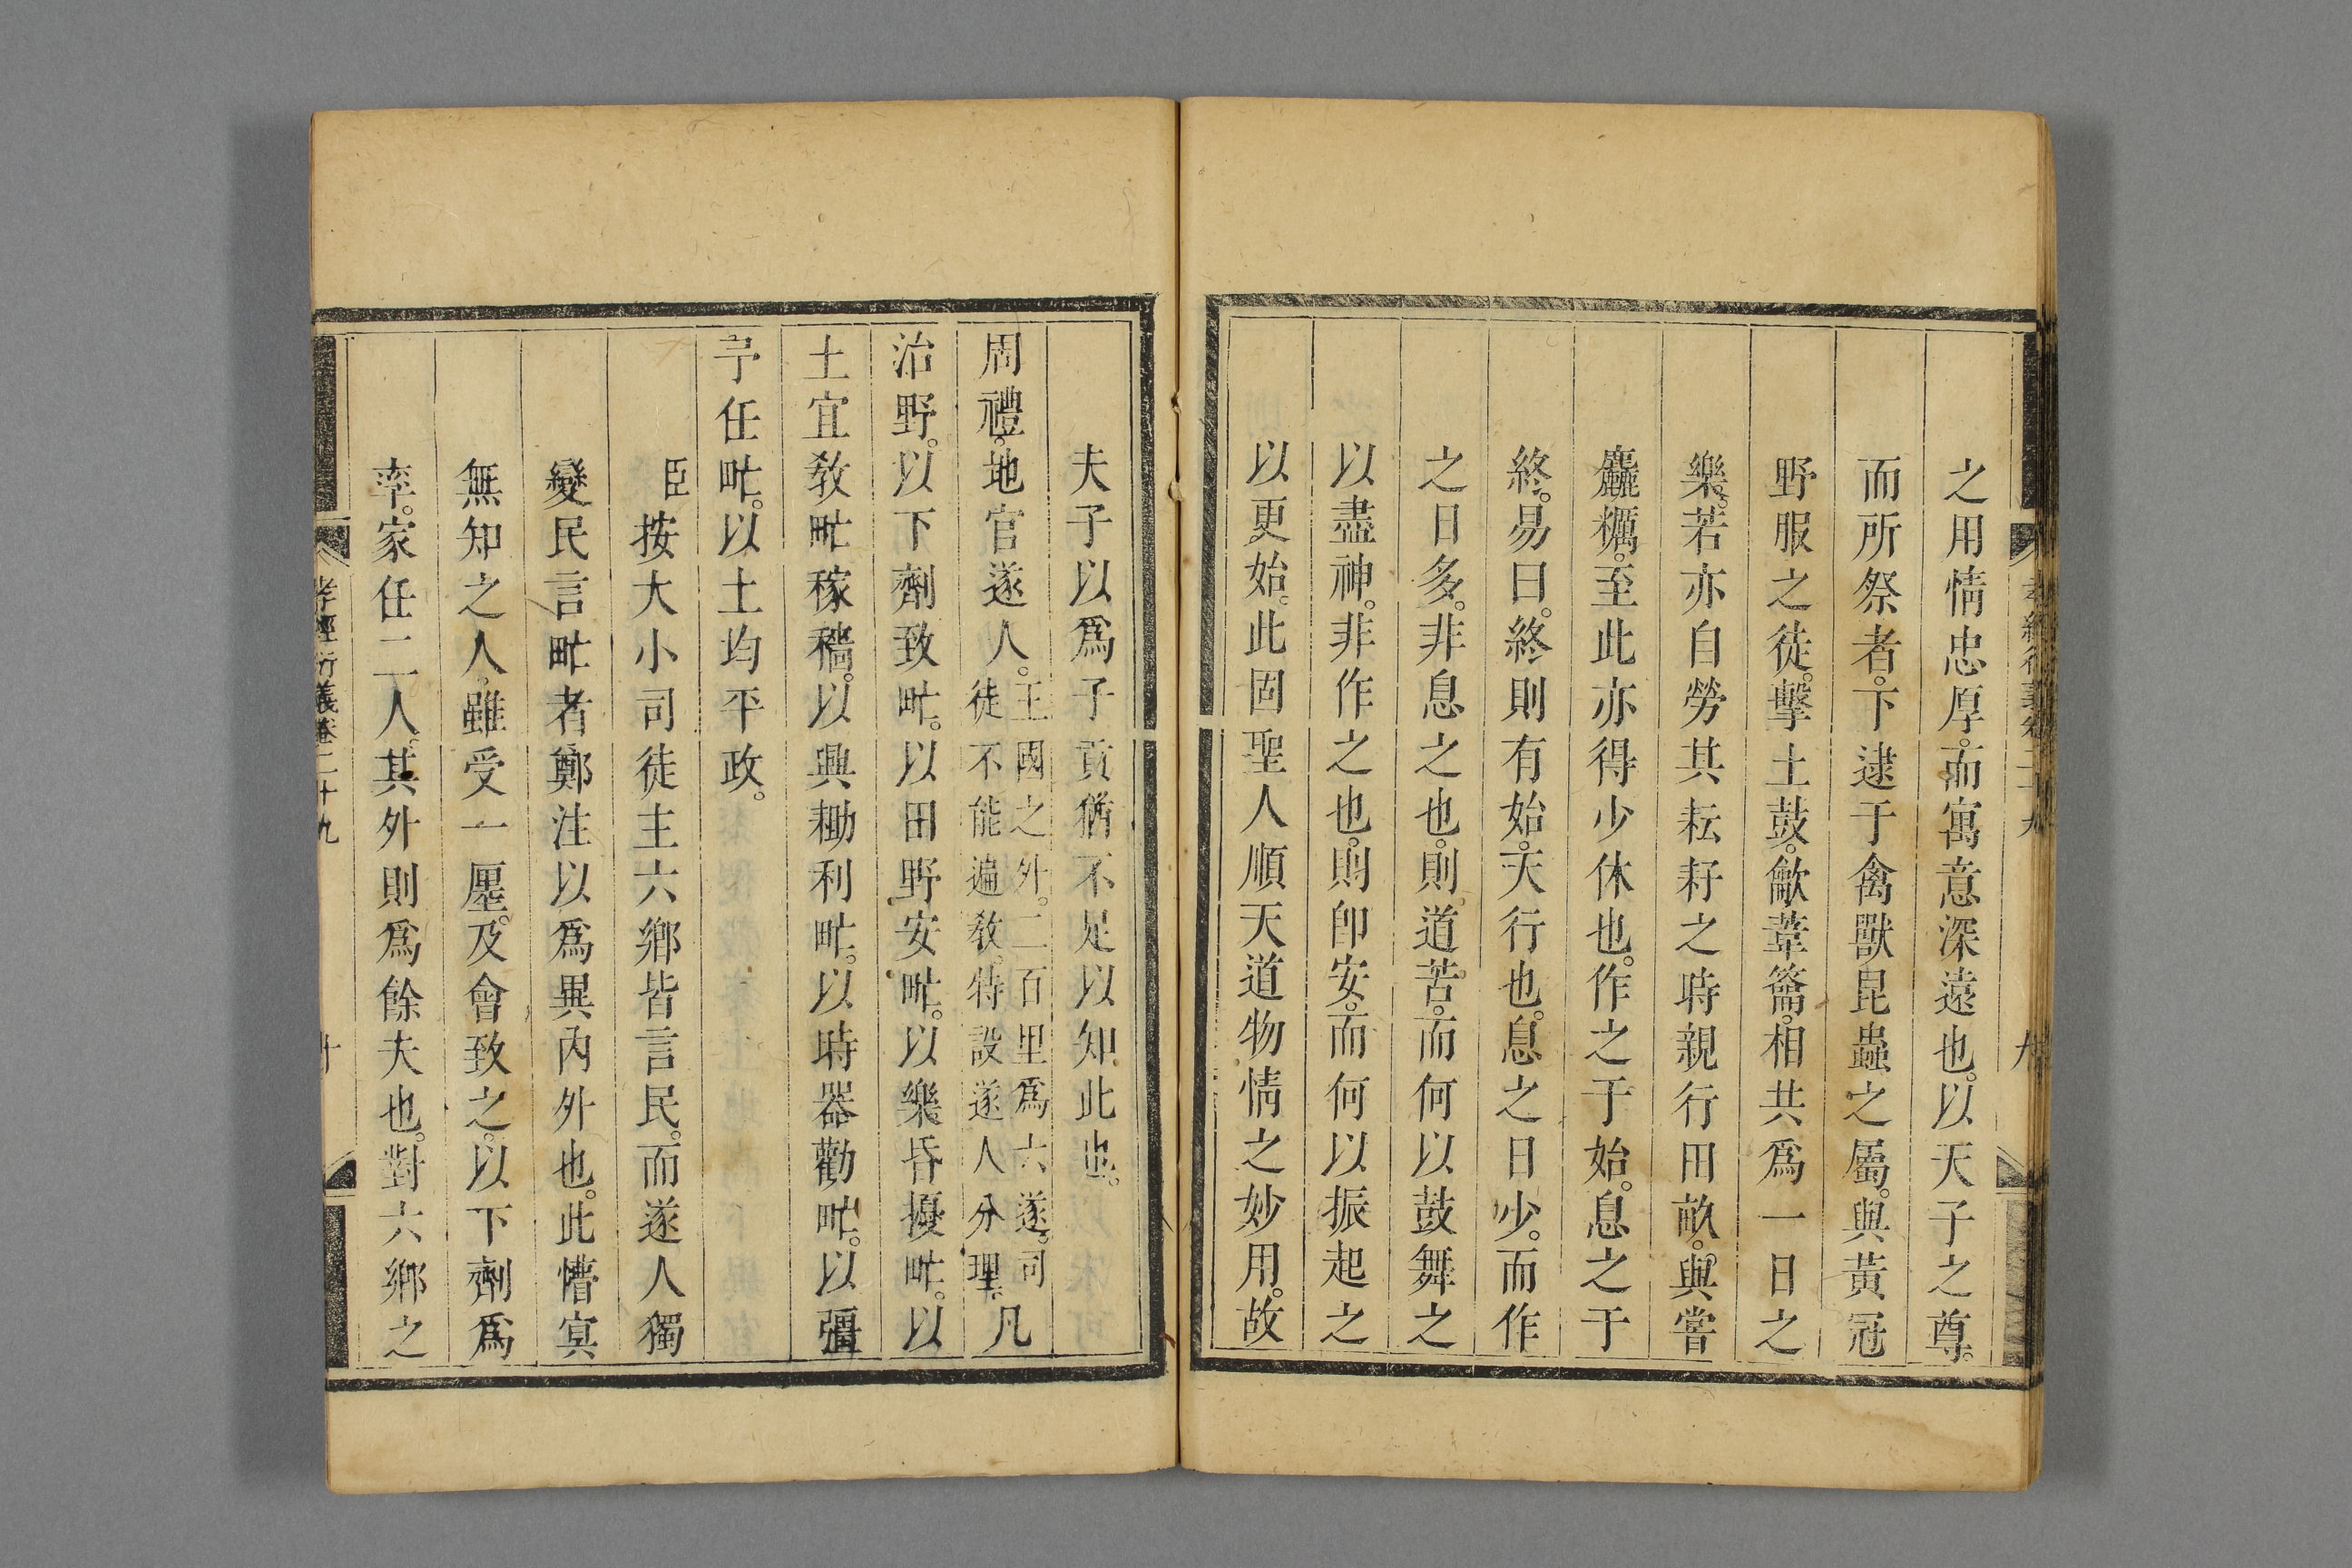 之用情忠厚。而寓意深遠也。以天子之尊。
而所祭者。下逮于禽獸昆蟲之屬。與黃冠
野服之徒。擊土鼓。龡葦籥。相共爲一日之
樂。若亦自勞其耘耔之時親行田畝。與嘗
麤糲。至此亦得少休也。作之于始。息之于
終。易曰。終則有始。天行也。息之日少。而作
之日多。非息之也。則道苦。而何以鼓舞之
以盡神。非作之也。則卽安。而何以振起之
以更始。此固聖人順天道物情之妙用。故
夫子以爲子貢猶不足以知此也。
周禮。地官遂人。王國之外。二百里爲六遂。司
徒不能遍敎。特設遂人分理。凡
治野。以下劑致甿。以田野安甿。以樂昏擾甿。以
土宜敎甿稼穡。以興耡利甿。以時器勸甿。以彊
予任甿。以土均平政。
臣按大小司徒主六鄉皆言民。而遂人獨
變民言甿者鄭注以爲異內外也。此懵冥
無知之人。雖受一廛。及會致之。以下劑爲
率。家任二人。其外則爲餘夫也。對六鄉之
孝經衍義卷二十九
十